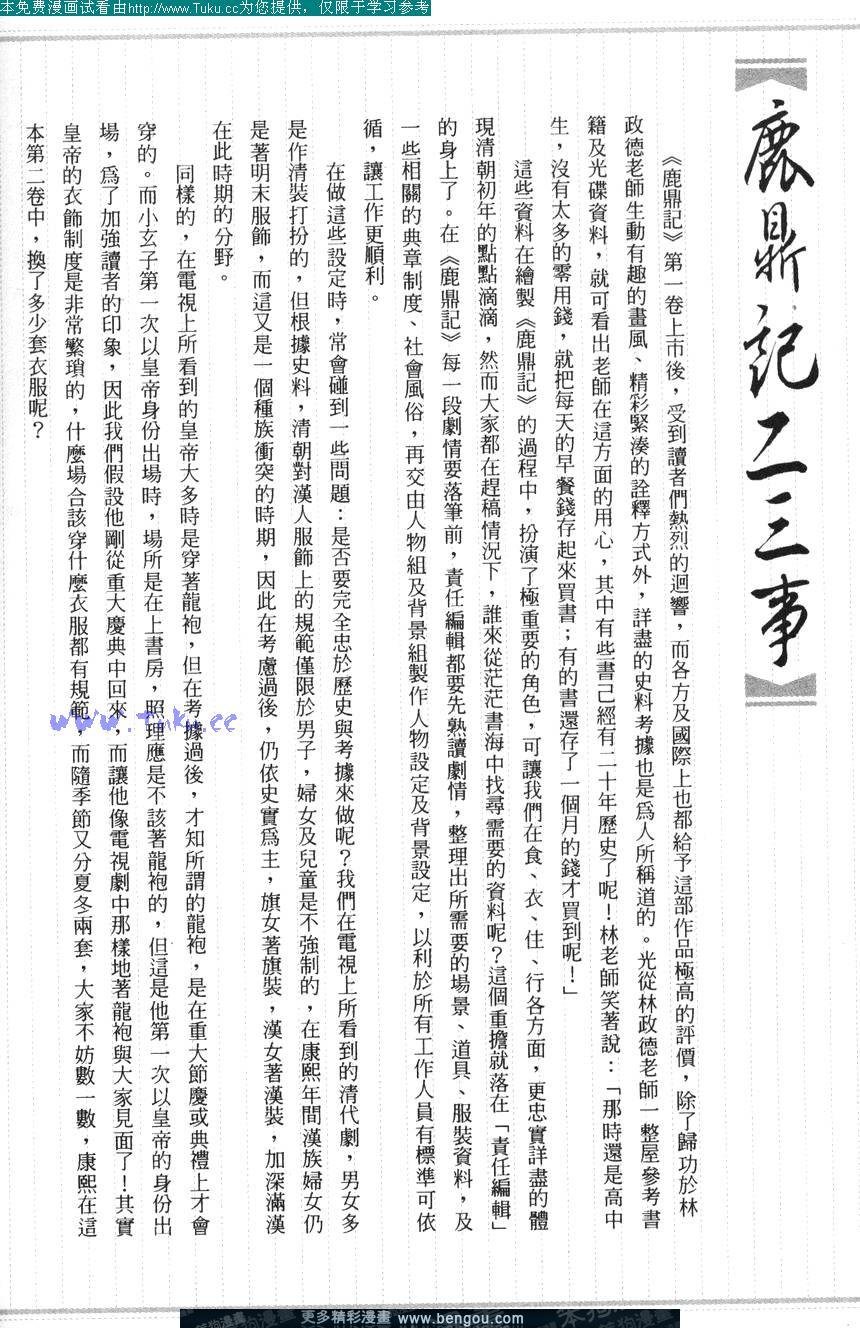 本免费漫画试看由http://www.Tuku.cc为您提供，仅限于学习参考
鹿鼎記二三事
《鹿鼎記》第一卷上市後，受到讀者們熱烈的迴響，而各方及國際上也都給予這部作品極高的評價，除了歸功於林
政德老師生動有趣的畫風、精彩緊湊的詮釋方式外，詳盡的史料考據也是爲人所稱道的。光從林政德老師一整屋參考書
籍及光碟資料，就可看出老師在這方面的用心，其中有些書已經有二十年歷史了呢！林老師笑著說：「那時還是高中
生，沒有太多的零用錢，就把每天的早餐錢存起來買書；有的書還存了一個月的錢才買到呢！」
這些資料在繪製《鹿鼎記》的過程中，扮演了極重要的角色，可讓我們在食、衣、住、行各方面，更忠實詳盡的體
現清朝初年的點點滴滴，然而大家都在趕稿情況下，誰來從茫茫書海中找尋需要的資料呢？這個重擔就落在「責任編輯」
的身上了。在《鹿鼎記》每一段劇情要落筆前，責任編輯都要先熟讀劇情，整理出所需要的場景、道具、服裝資料，及
一些相關的典章制度、社會風俗，再交由人物組及背景組製作人物設定及背景設定，以利於所有工作人員有標準可依
循，讓工作更順利。
在做這些設定時，常會碰到一些問題：是否要完全忠於歷史與考據來做呢？我們在電視上所看到的清代劇，男女多
是作清裝打扮的，但根據史料，清朝對漢人服飾上的規範僅限於男子，婦女及兒童是不強制的，在康熙年間漢族婦女仍
是著明末服飾，而這又是一個種族衝突的時期，因此在考慮過後，仍依史實爲主，旗女著旗裝，漢女著漢裝，加深滿漢
在此時期的分野。
同樣的，在電視上所看到的皇帝大多時是穿著龍袍，但在考據過後，才知所謂的龍袍，是在重大節慶或典禮上才會
穿的。而小玄子第一次以皇帝身份出場時，場所是在上書房，照理應是不該著龍袍的，但這是他第一次以皇帝的身份出
場，爲了加強讀者的印象，因此我們假設他剛從重大慶典中回來，而讓他像電視劇中那樣地著龍袍與大家見面了！其實
皇帝的衣飾制度是非常繁瑣的，什麼場合該穿什麼衣服都有規範，而隨季節又分夏冬兩套，大家不妨數一數，康熙在這
本第二卷中，換了多少套衣服呢？
www.Tuku.cc
更多精彩漫畫 www.bengou.com